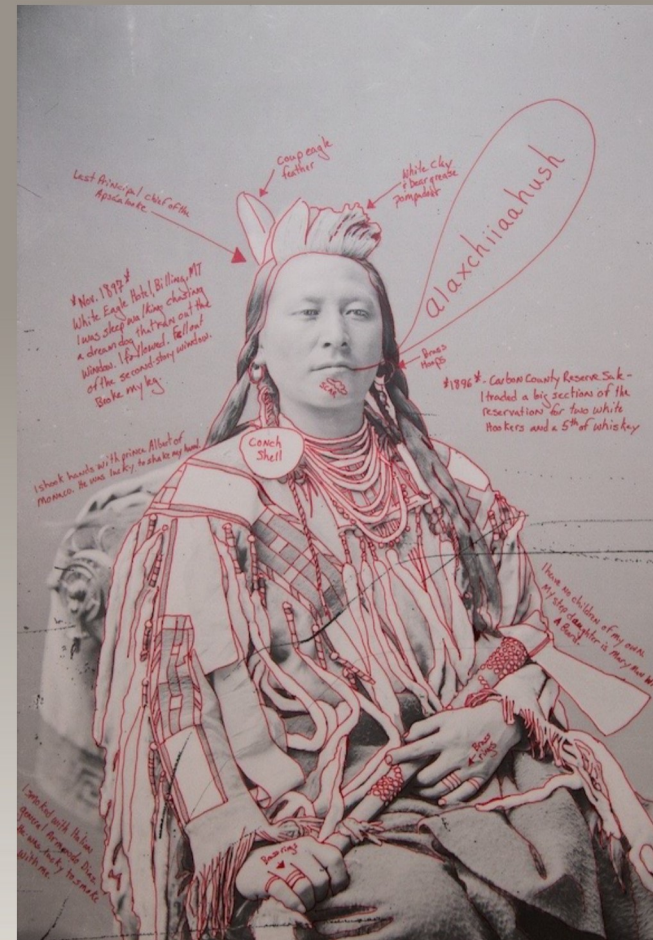 Coup eagle
feather
Last Principal chief of the
Apsáalooke
White Clay
+ bear grease
pompadour
alaxchiiaahush
*Nov. 1897*
White Eagle Hotel, Billings, MT
I was sleep walking chasing
a dream dog that ran out the
window. I followed. Fell out
of the second-story window.
Broke my leg.
Brass
Hoops
*1896* - Carbon County Reserve Sale -
I traded a big sections of the
reservation for two white
Hookers and a 5th of whiskey
Conch
Shell
I shook hands with prince Albert of
Monaco. He was lucky to shake my hand.
I have no children of my own
My step daughter is Mary
A Beard
Brass
rings
Brass rings
I smoked with Italian
general Armando Diaz
He was lucky to smoke
with me.